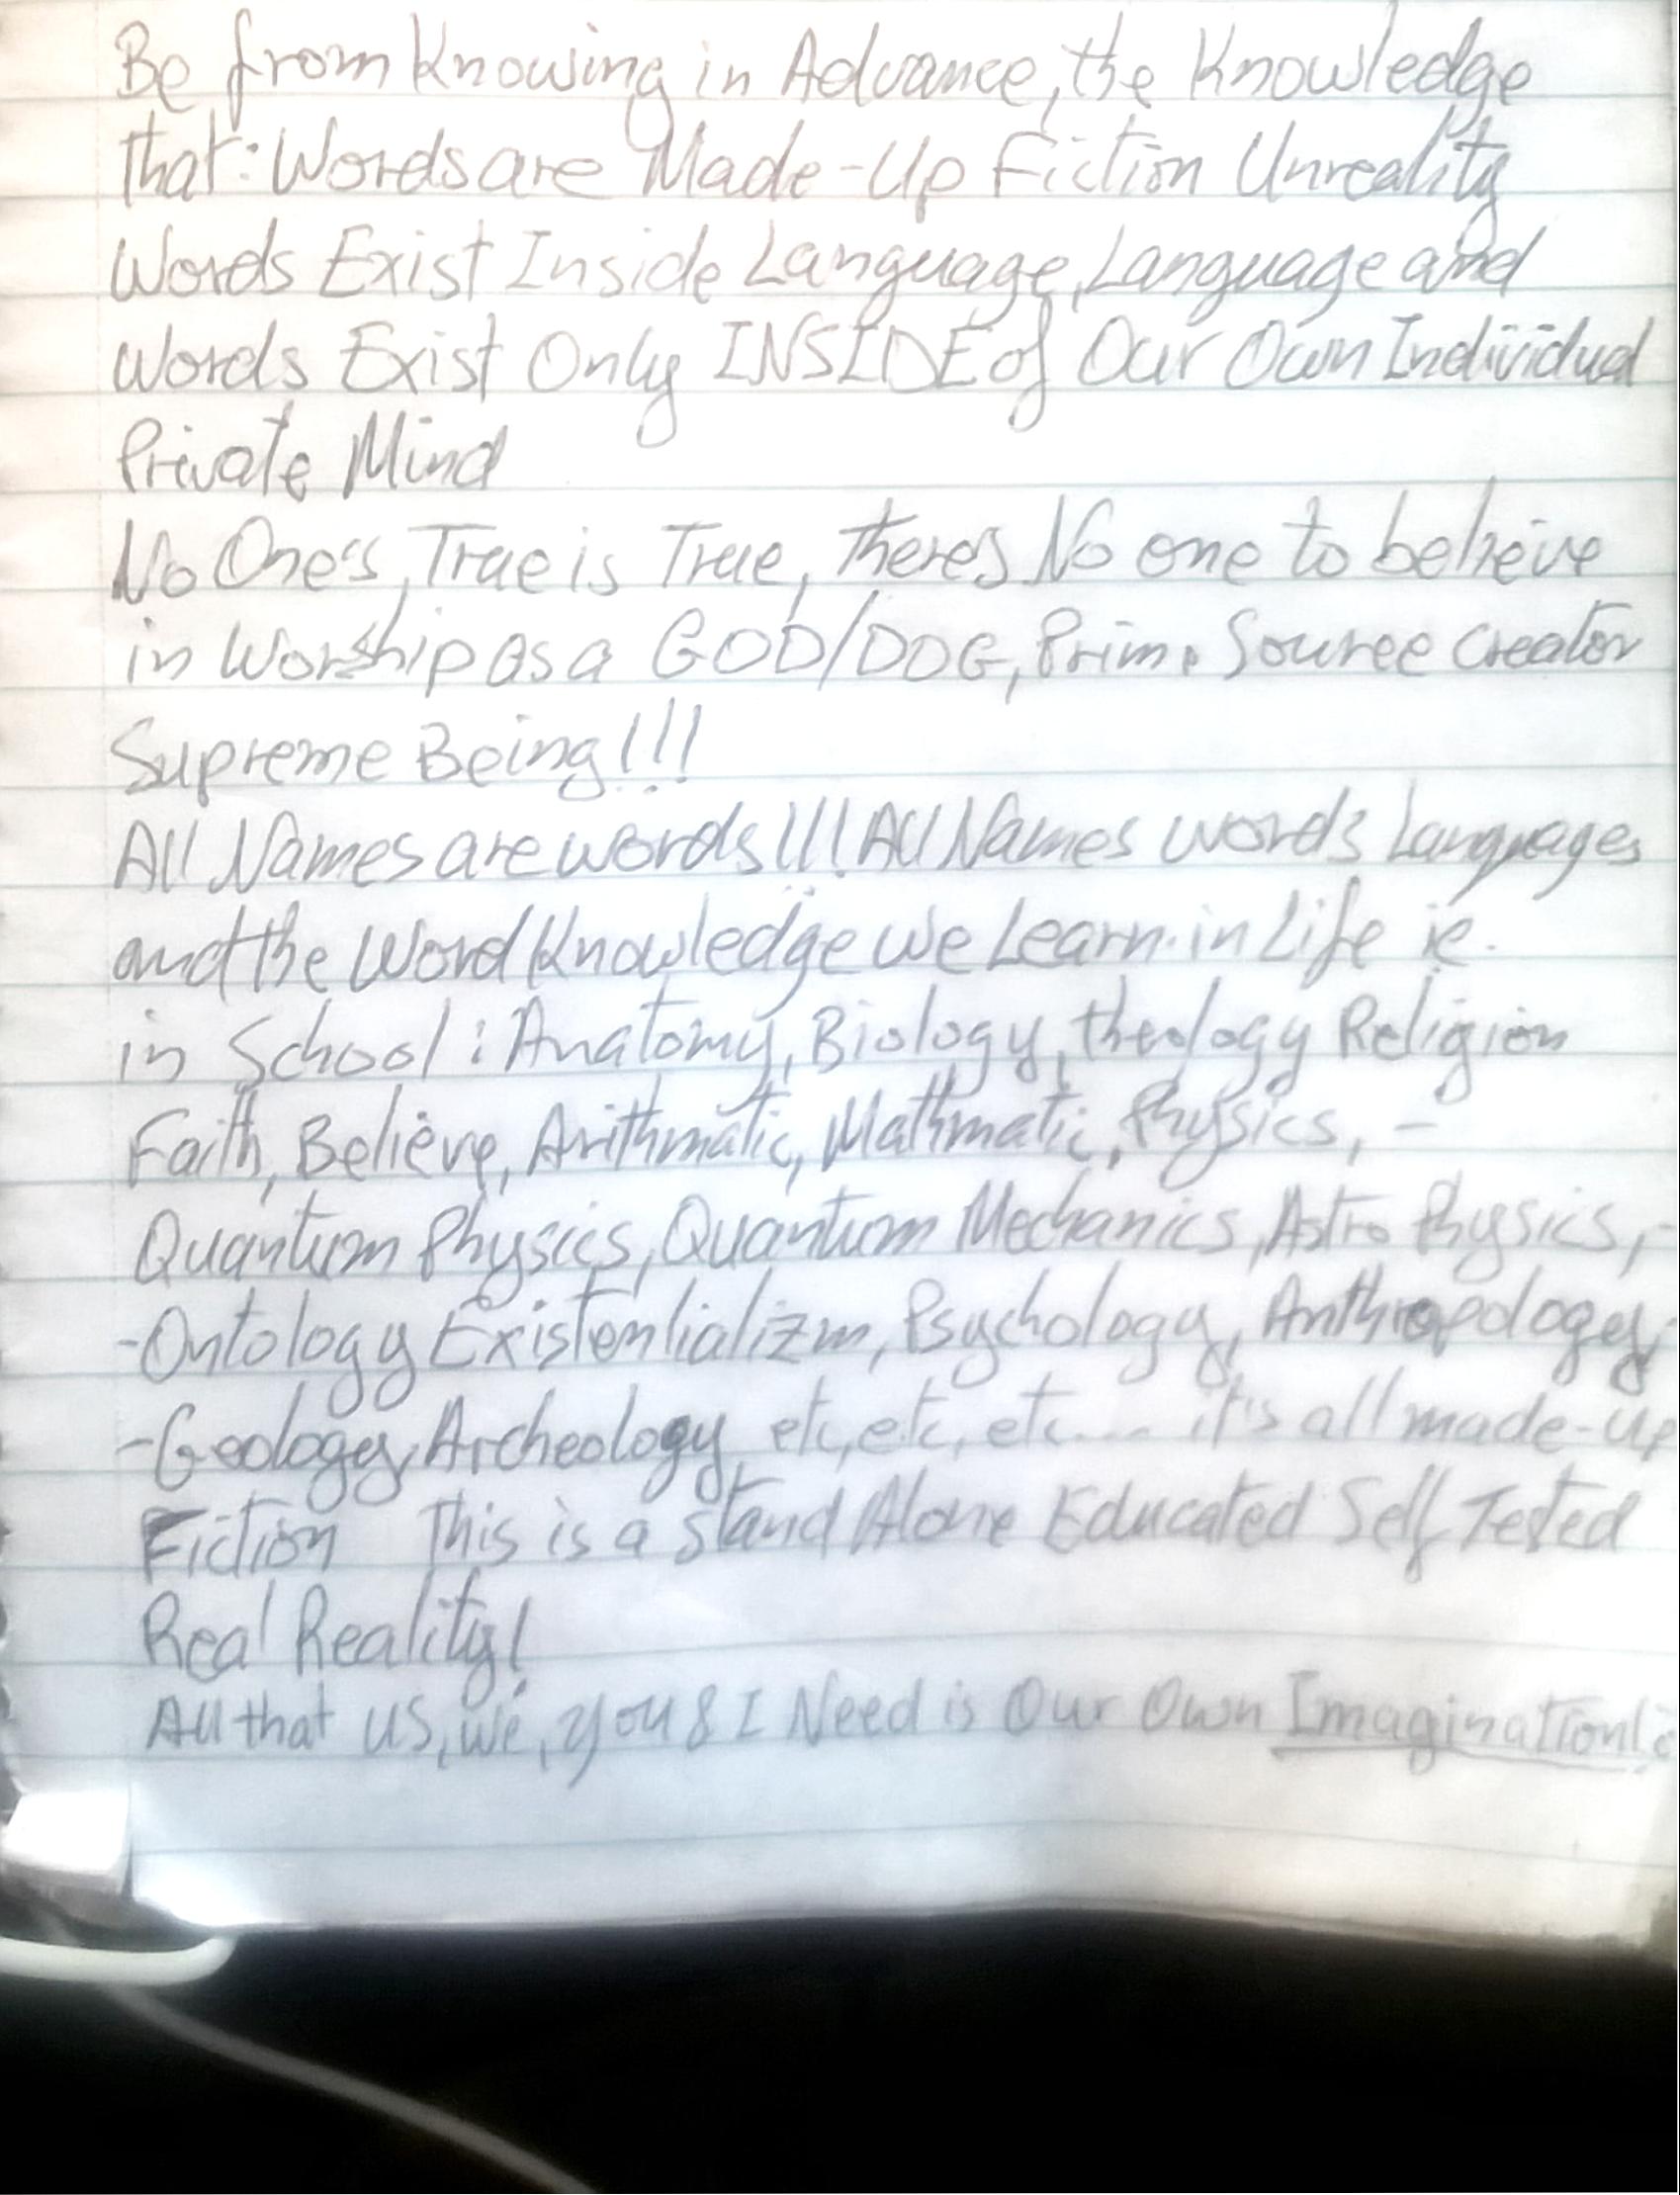 Be from Knowing in Advance, the Knowledge
that: Words are Made-Up Fiction Unreality
Words Exist Inside Language, Language and
Words Exist Only INSIDE of Our Own Individual
Private Mind
No One's, True is True, theres No one to believe
in Worship as a GOD/DOG, Prime Source Creator
Supreme Being!!!
All Names are words!!! All Names words Languages
and the Word Knowledge we Learn in Life ie.
in School: Anatomy, Biology, theology Religion
Faith, Believe, Arithmatic, Mathmatic, Physics, -
Quantum Physics, Quantum Mechanics, Astro Physics, -
-Ontology Existenlializm, Psychology, Anthropology
-Geology, Archeology etc, etc, etc.... it's all made-up
Fiction This is a Stand Alone Educated Self Tested
Real Reality!
All that US, We, you & I Need is Our Own Imagination!